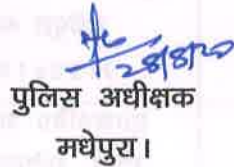 28/8/20
पुलिस अधीक्षक
मधेपुरा।